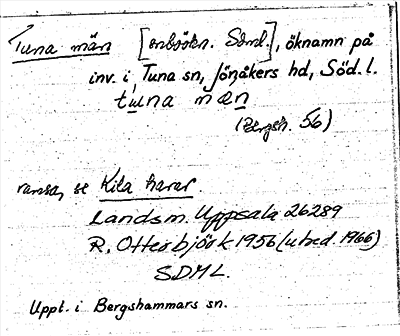 Tuna män [enbsökn. Söml.], öknamn på
inv. i Tuna sn, Jönåkers hd, Söd. l.
tuna mæn
(Bergsh. 56)
ramsa, se Kila harar.
Landsm. Uppsala 26289
R. Otterbjörk 1956 (utred. 1966)
SDML.
Uppt. i Bergshammars sn.